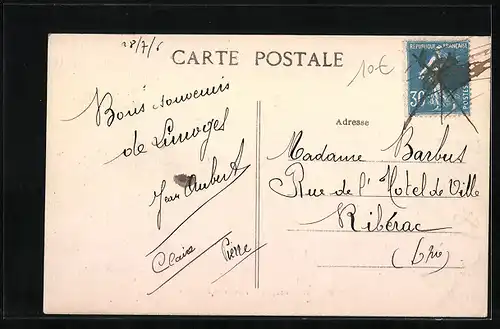 28/7/6
CARTE POSTALE
10€
RÉPUBLIQUE FRANÇAISE
30
POSTES
Adresse
Bons souvenirs
de Limoges
Jean Aubert
Claire
Pierre
Madame Barbus
Rue de l'Hotel de Ville
Ribérac